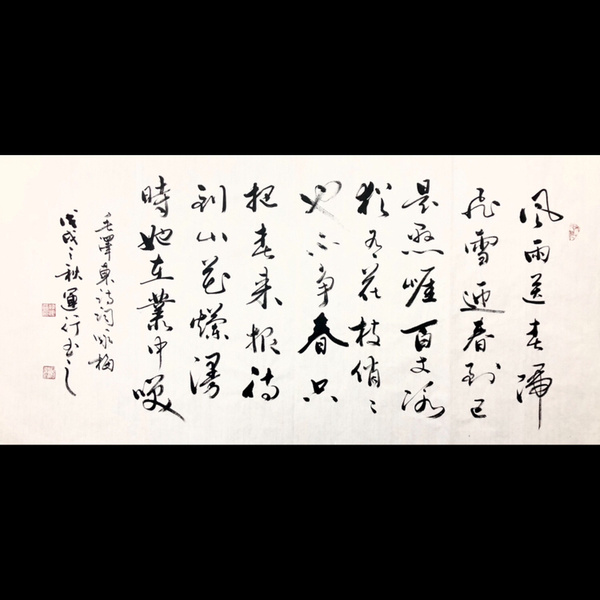 風雨送春歸
飛雪迎春到已
是懸崖百丈冰
猶有花枝俏〻
也不爭春只
把春來報待
到山花爛漫
時她在業中笑
毛澤東詩詞咏梅
戊戌之秋運行书之